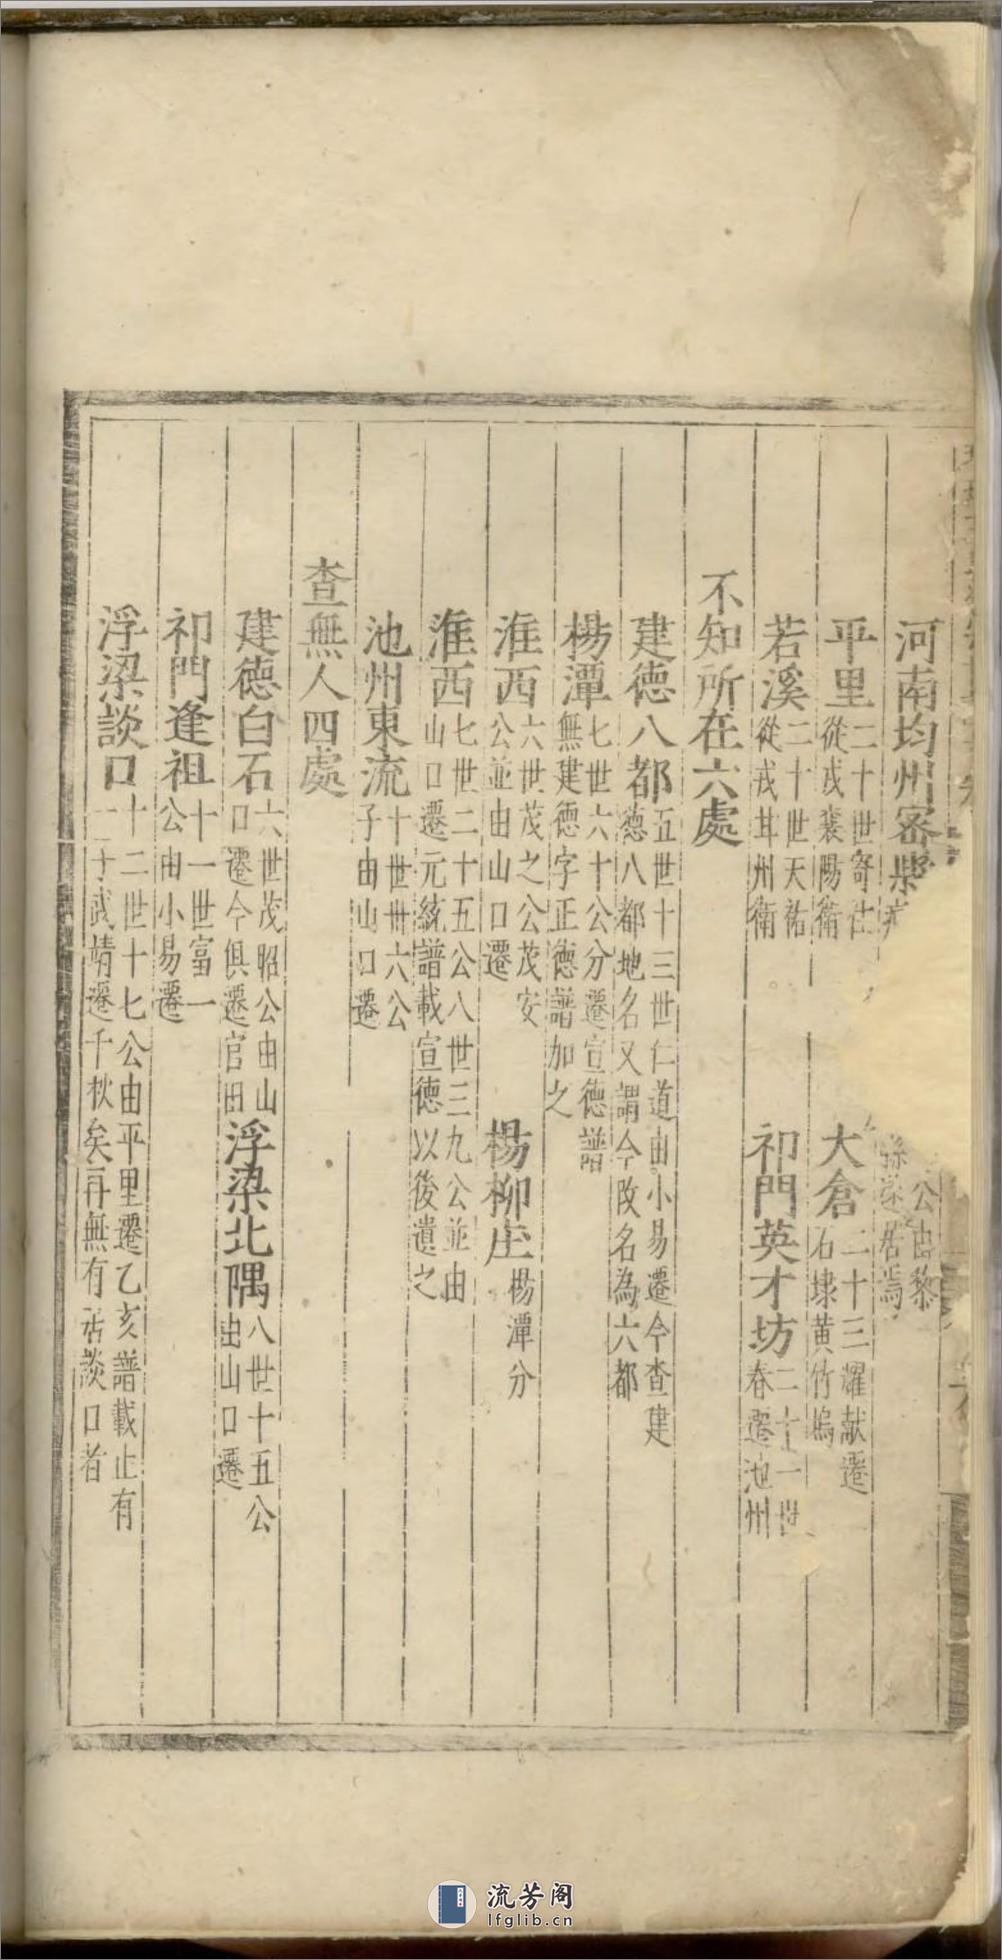 河南均州密
公由黎
居焉
平里二十世寄住
從戎襄陽衛
大倉二十三耀献遷
石埭黄竹塢
若溪二十世天祐
從戎甘州衛
祁門英才坊二十一世
春遷池州
不知所在六處
建德八都五世十三世仁道由小易遷今查建
德八都地名又謂今改名為六都
楊潭七世六十公分遷宣德譜
無建德字正德譜加之
淮西六世茂之公茂安
公並由山口遷
楊柳庄楊潭分
淮西七世二十五公八世三九公並由
山口遷元統譜載宣德以後遺之
池州東流十世卅六公
子由山口遷
查無人四處
建德白石六世茂昭公由山
口遷今俱遷官田
浮梁北隅八世十五公
出山口遷
祁門逢祖十一世富一
公由小易遷
浮梁談口十二世十七公由平里遷乙亥譜載止有
一子武靖遷千秋矣再無有居談口者
流芳阁
lfglib.cn